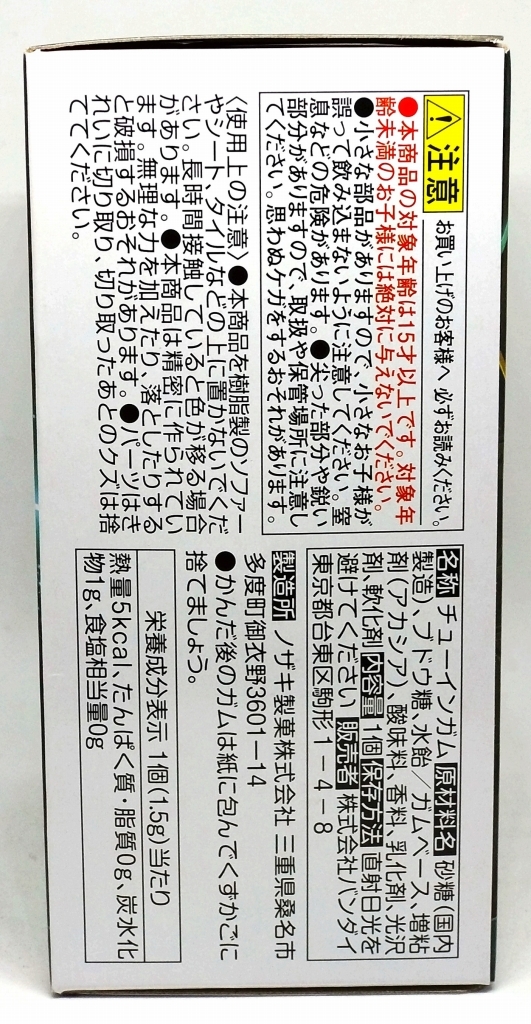 注意 お買い上げのお客様へ 必ずお読みください。
●本商品の対象年齢は15才以上です。対象年
齢未満のお子様には絶対に与えないでください。
●小さな部品がありますので、小さなお子様が
誤って飲み込まないように注意してください。窒
息などの危険があります。●尖った部分や鋭い
部分がありますので、取扱や保管場所に注意し
てください。思わぬケガをするおそれがあります。
〈使用上の注意〉●本商品を樹脂製のソファー
やシート、タイルなどの上に置かないでくだ
さい。長時間接触していると色が移る場合
があります。●本商品は精密に作られてい
ます。無理な力を加えたり、落としたりする
と破損するおそれがあります。●パーツはき
れいに切り取り、切り取ったあとのクズは捨
ててください。
名称 チューインガム 原材料名 砂糖(国内
製造)、ブドウ糖、水飴／ガムベース、増粘
剤(アカシア)、酸味料、香料、乳化剤、光沢
剤、軟化剤 内容量 1個 保存方法 直射日光を
避けてください 販売者 株式会社バンダイ
東京都台東区駒形1-4-8
製造所 ノザキ製菓株式会社 三重県桑名市
多度町御衣野3601-14
●かんだ後のガムは紙に包んでくずかごに
捨てましょう。
栄養成分表示 1個(1.5g)当たり
熱量5kcal、たんぱく質・脂質0g、炭水化
物1g、食塩相当量0g